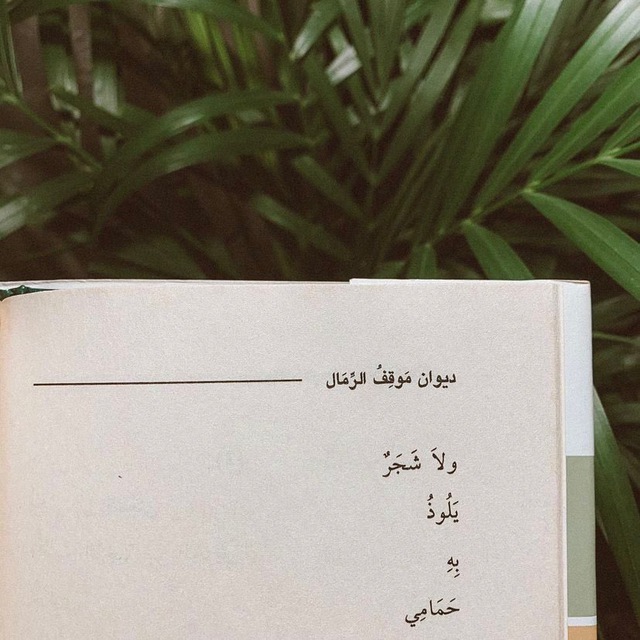 ديوان مَوقِفُ الرِّمَال
ولاَ شَجَرٌ
يَلُوذُ
بِهِ
حَمَامِي